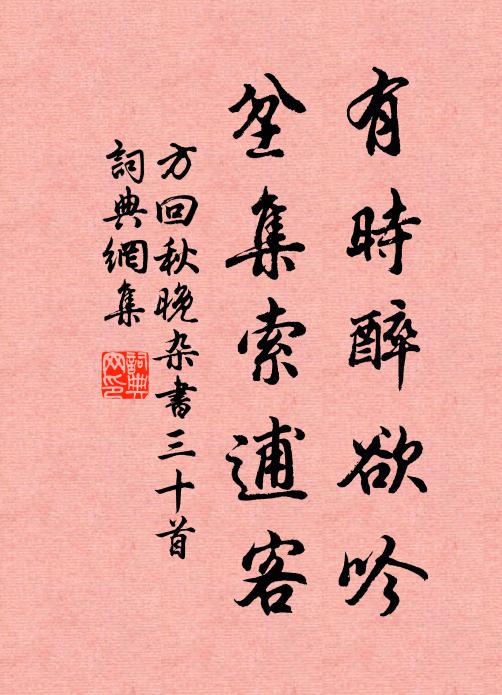 有時醉欲吟
坌集索逋客
方回秋晚杂書三十首
詞典網集
詞典網印